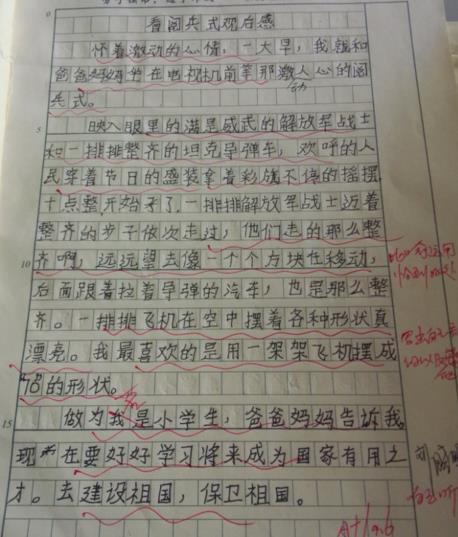 看阅兵式观后感
怀着激动的心情，一大早，我就和
爸爸妈妈坐在电视机前等那激人心的阅
动
兵式。
映入眼里的满是威武的解放军战士
和一排排整齐的坦克导弹车，欢呼的人
民穿着节日的盛装拿着彩旗不停的摇摆
十点整开始了，一排排解放军战士迈着
整齐的步子依次走过，他们走的那么整
齐啊，远远望去像一个个方块在移动，
后面跟着拉着导弹的汽车，也是那么整
齐。一排排飞机在空中摆着各种形状真
漂亮。我最喜欢的是用一架架飞机摆成
"70"的形状。
做为我是小学生，爸爸妈妈告诉我。
现在要好好学习将来成为国家有用之
才。去建设祖国，保卫祖国。
5
10
15